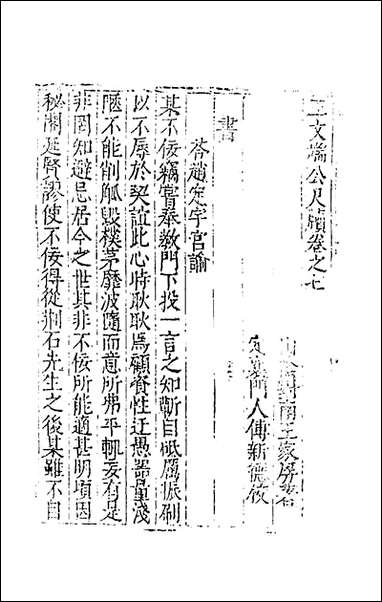 王文端公尺牘卷之七
山陰對南王家屏著
定襄門人傅新德校
書
荅趙定宇宮諭
某不佞竊嘗奉教門下投一言之知斬自砥厲振刷
以不辱於契誼此心時耿耿焉顧資性迂愚器量淺
陋不能削觚毀樸茅靡波隨而意所弗平輒妄有是
非罔知避忌居今之世其非不佞所能適甚明頃因
秘閣延賢謬使不佞得從荊石先生之後某雖不自